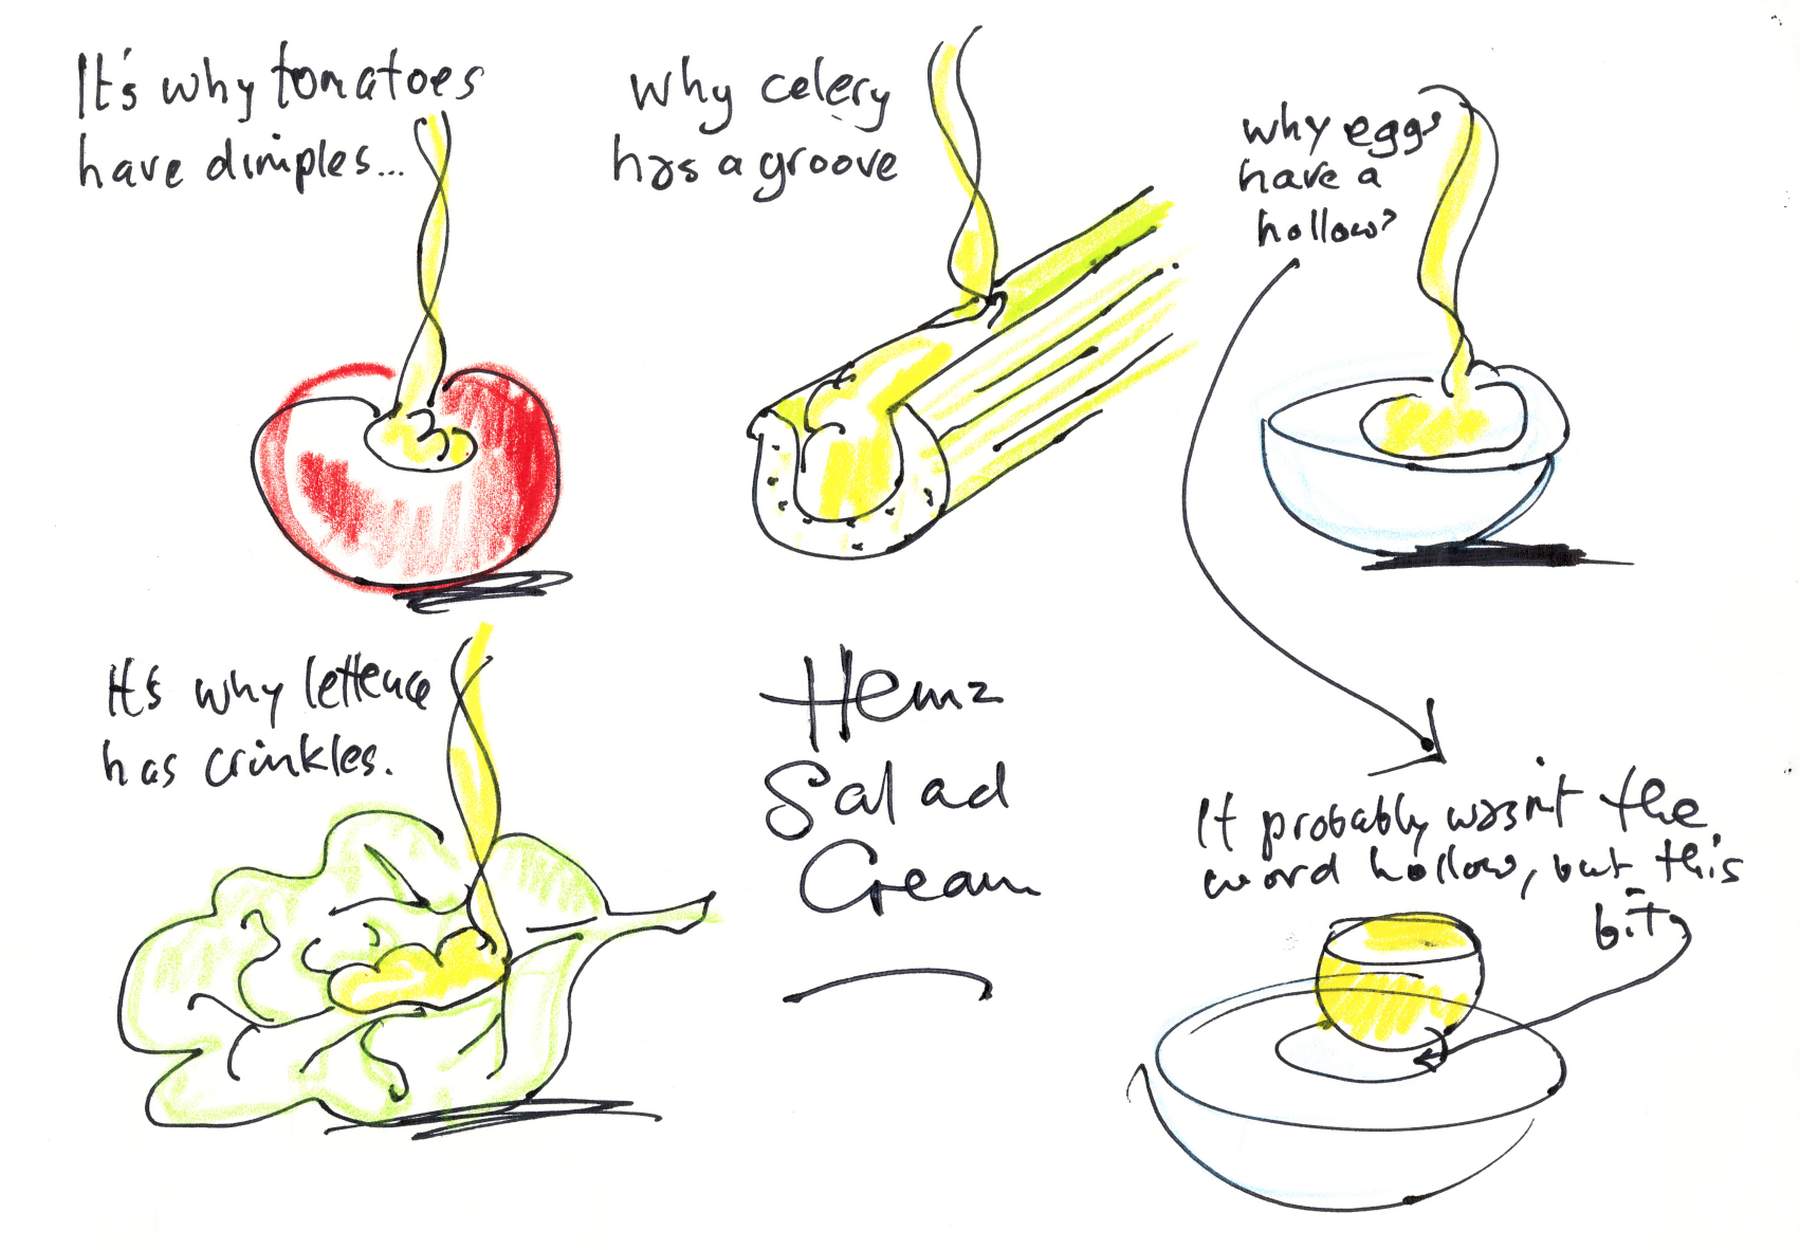 It's why tomatoes
have dimples...
why celery
has a groove
why eggs
have a
hollow?
It's why lettuce
has crinkles.
Heinz
Salad
Cream
It probably wasn't the
word hollow, but this
bit